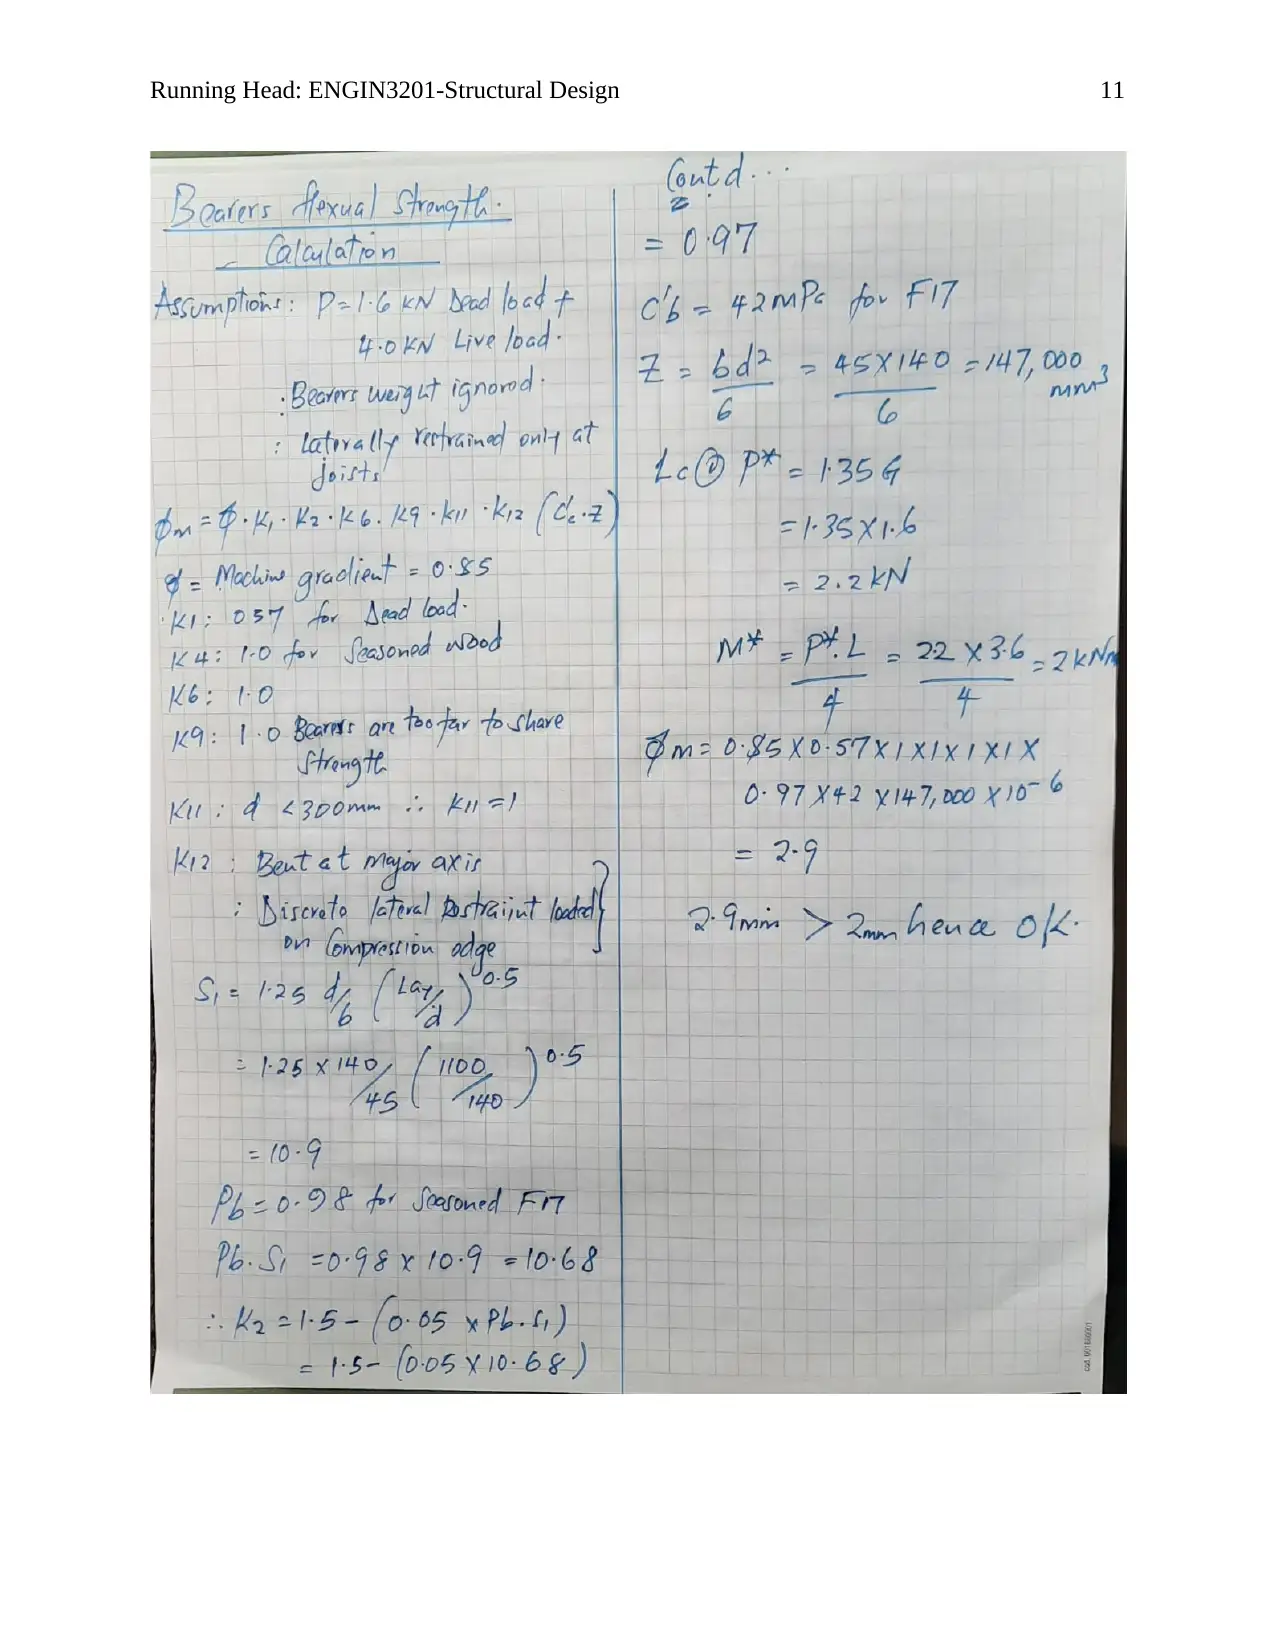 Running Head: ENGIN3201-Structural Design 11
Bearers flexual Strength.
- Calculation
Assumptions: P=1.6 KN Dead load +
4.0 KN Live load.
: Bearers weight ignored.
: laterally restrained only at
joists
ϕm = ϕ·K1·K2·K6·K9·K11·K12 (C'c·Z)
ϕ = Machine gradient = 0.85
K1: 057 for Dead load.
K4: 1.0 for Seasoned wood
K6: 1.0
K9: 1.0 Bearers are too far to share
Strength
K11: d <300mm ∴ K11=1
K12: Bent at major axis
: Discrete lateral loaded
on Compression edge
S1 = 1.25 d/b (Lay/d)^0.5
= 1.25 x 140/45 (1100/140)^0.5
= 10.9
Pb = 0.98 for Seasoned F17
Pb.S1 = 0.98 x 10.9 = 10.68
∴ K2 = 1.5 - (0.05 x Pb.S1)
= 1.5 - (0.05 x 10.68)
Contd...
= 0.97
C'b = 42MPa for F17
Z = bd²/6 = 45X140/6 = 147,000 mm³
Lc@ P* = 1.35 G
= 1.35 X1.6
= 2.2 kN
M* = P*.L/4 = 2.2 X 3.6/4 = 2 kNm
ϕm = 0.85 X 0.57 X 1 X 1 X 1 X 1 X
0.97 X 42 X 147,000 X 10^-6
= 2.9
2.9mm > 2mm hence OK.